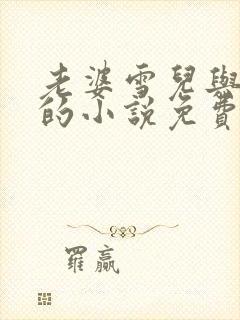 老婆雪兒與
的小說免費
羅贏